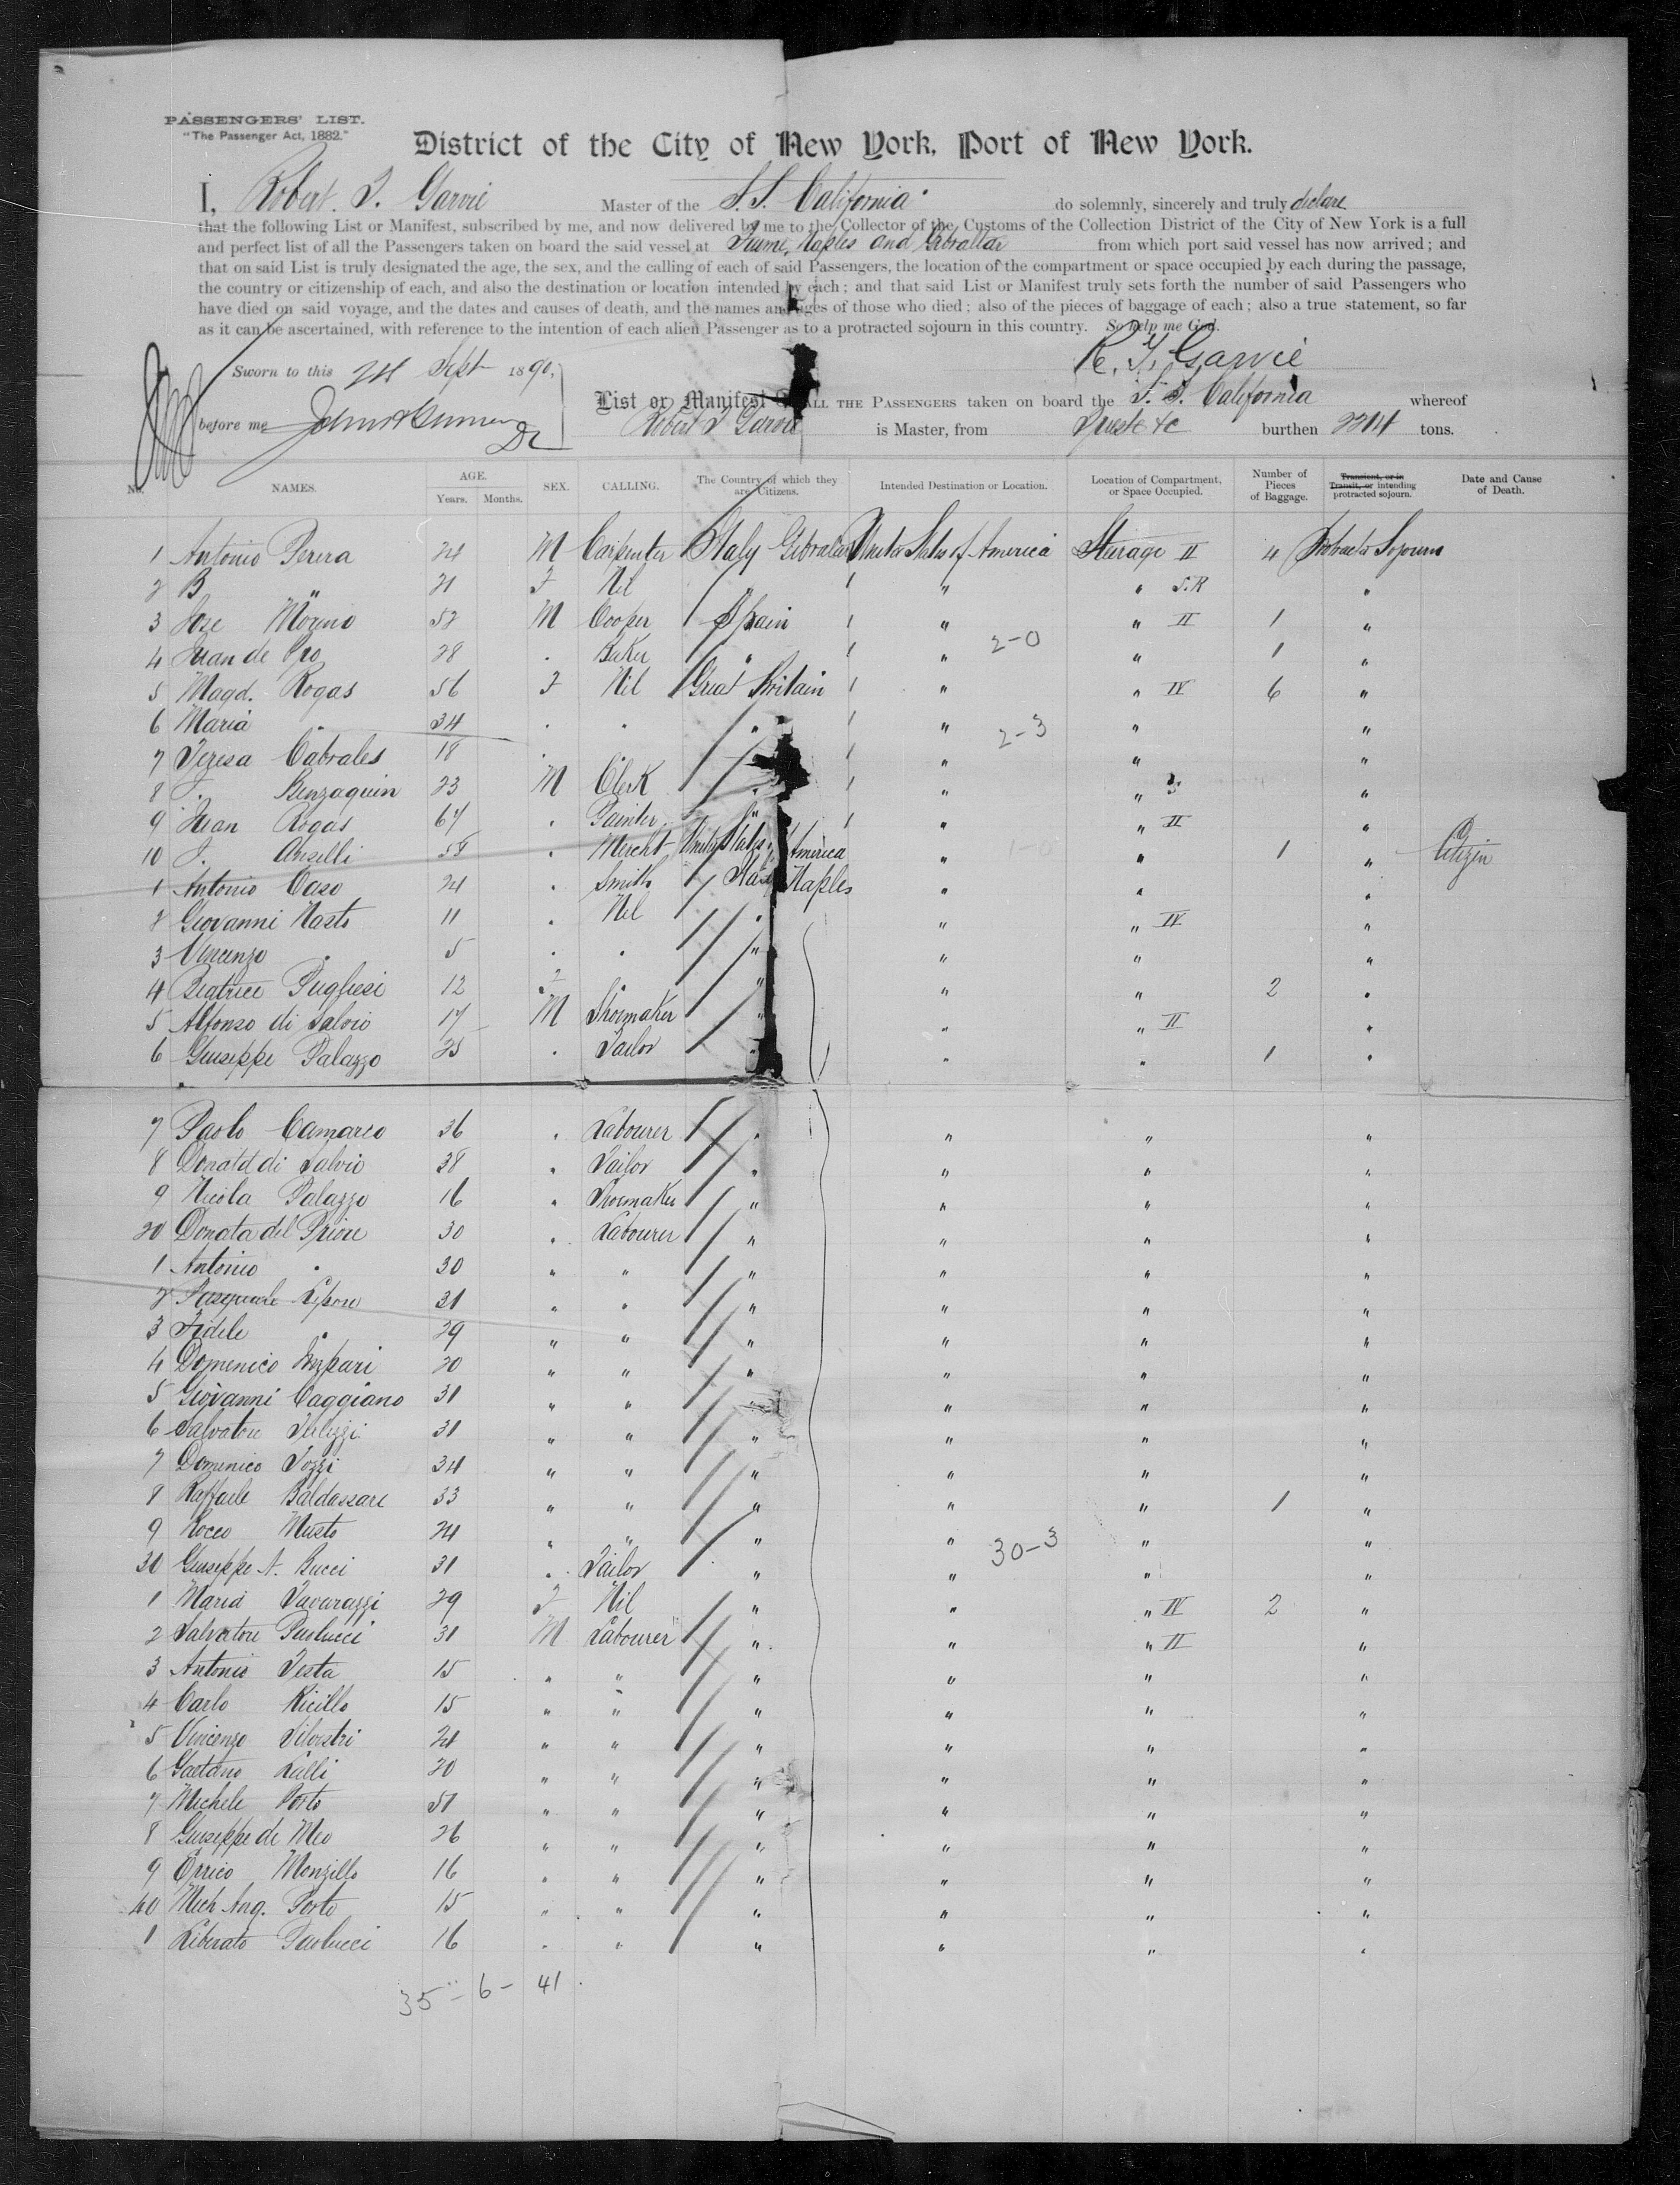 PASSENGERS' LIST.
"The Passenger Act, 1882."
District of the City of New York, Port of New York.
I, Robert. T. Garvie Master of the S.S. California do solemnly, sincerely and truly declare
that the following List or Manifest, subscribed by me, and now delivered by me to the Collector of the Customs of the Collection District of the City of New York is a full
and perfect list of all the Passengers taken on board the said vessel at Fiume, Naples and Gibraltar from which port said vessel has now arrived; and
that on said List is truly designated the age, the sex, and the calling of each of said Passengers, the location of the compartment or space occupied by each during the passage,
the country or citizenship of each, and also the destination or location intended by each; and that said List or Manifest truly sets forth the number of said Passengers who
have died on said voyage, and the dates and causes of death, and the names and ages of those who died; also of the pieces of baggage of each; also a true statement, so far
as it can be ascertained, with reference to the intention of each alien Passenger as to a protracted sojourn in this country. So help me God.
R. T. Garvie
Sworn to this 24 Sept 1890,
List or Manifest ALL THE PASSENGERS taken on board the S. S. California whereof
before me
Robert T Garvie is Master, from Trieste &c burthen tons.
No. NAMES. AGE. Years. Months. SEX. CALLING. The Country of which they are Citizens. Intended Destination or Location. Location of Compartment, or Space Occupied. Number of Pieces of Baggage. Transient, or in Transit, or intending protracted sojourn. Date and Cause of Death.
1 Antonio Perera 24 M Carpenter Italy Gibraltar United States of America Sterage II 4 Sojourn
2 B " 21 F Nil " " S.R "
3 Jose Moreno 52 M Cooper Spain " " II 1 "
4 Juan de 28 . Baker " " 2-0 " 1 "
5 Magd. Rogas 56 F Nil Great Britain " " IV 6 "
6 Maria " 34 . . " " 2-3 " "
7 Teresa Cabrales 18 . " " "
8 Benzaquin 23 M Clerk . " " "
9 Juan Rogas 67 . Painter " " " II "
10 Anselli . Mercht United States America " 1-0 " 1 " Citizin
1 Antonio Caso 24 . Smith Naples " " "
2 Giovanni Nasto 11 . Nil . " " IV "
3 Vincenzo " 5 . . " " " "
4 Beatrice Pugliesi 12 F " " " " 2 "
5 Alfonso di Salvio 17 M Shoemaker " " " II "
6 Giuseppe Palazzo 25 . Tailor " " " 1 "
7 Paolo Camareo 36 . Labourer " " " "
8 Donato di Salvio 38 " Tailor " " " "
9 Nicola Palazzo 16 " Shoemaker " " " "
20 Donata del Priore 30 . Labourer " " " "
1 Antonio " 30 " " " " " "
2 Pasquale Lepore 31 " " " " " "
3 Fidele " 29 " " " " " "
4 Domenico 20 " " " " " "
5 Giovanni Caggiano 31 " " " " " "
6 Salvatore 31 " " " " " "
7 Domenico Tozzi 34 " " " " " "
8 Raffaele Baldassare 33 " " " " " 1 "
9 Rocco Musto 24 " " " " " "
30 Giuseppe A. Bucci 31 " Tailor " " 30-3 " "
1 Maria 29 F Nil " " " IV 2 "
2 Salvatore Paolucci 31 M Labourer " " " II "
3 Antonio Testa 15 " " " " " "
4 Carlo Ricillo 15 " " " " " "
5 Vincenzo Silvestri 24 " " " " " "
6 Gaetano Lalli 20 " " " " " "
7 Michele Porto 51 " " " " " "
8 Giuseppe de Meo 26 " " " " " "
9 Errico Monzillo 16 " " " " " "
40 Mich Ang. Porto 15 " " " " " "
1 Liberato Paolucci 16 " " " " " "
35 - 6 - 41